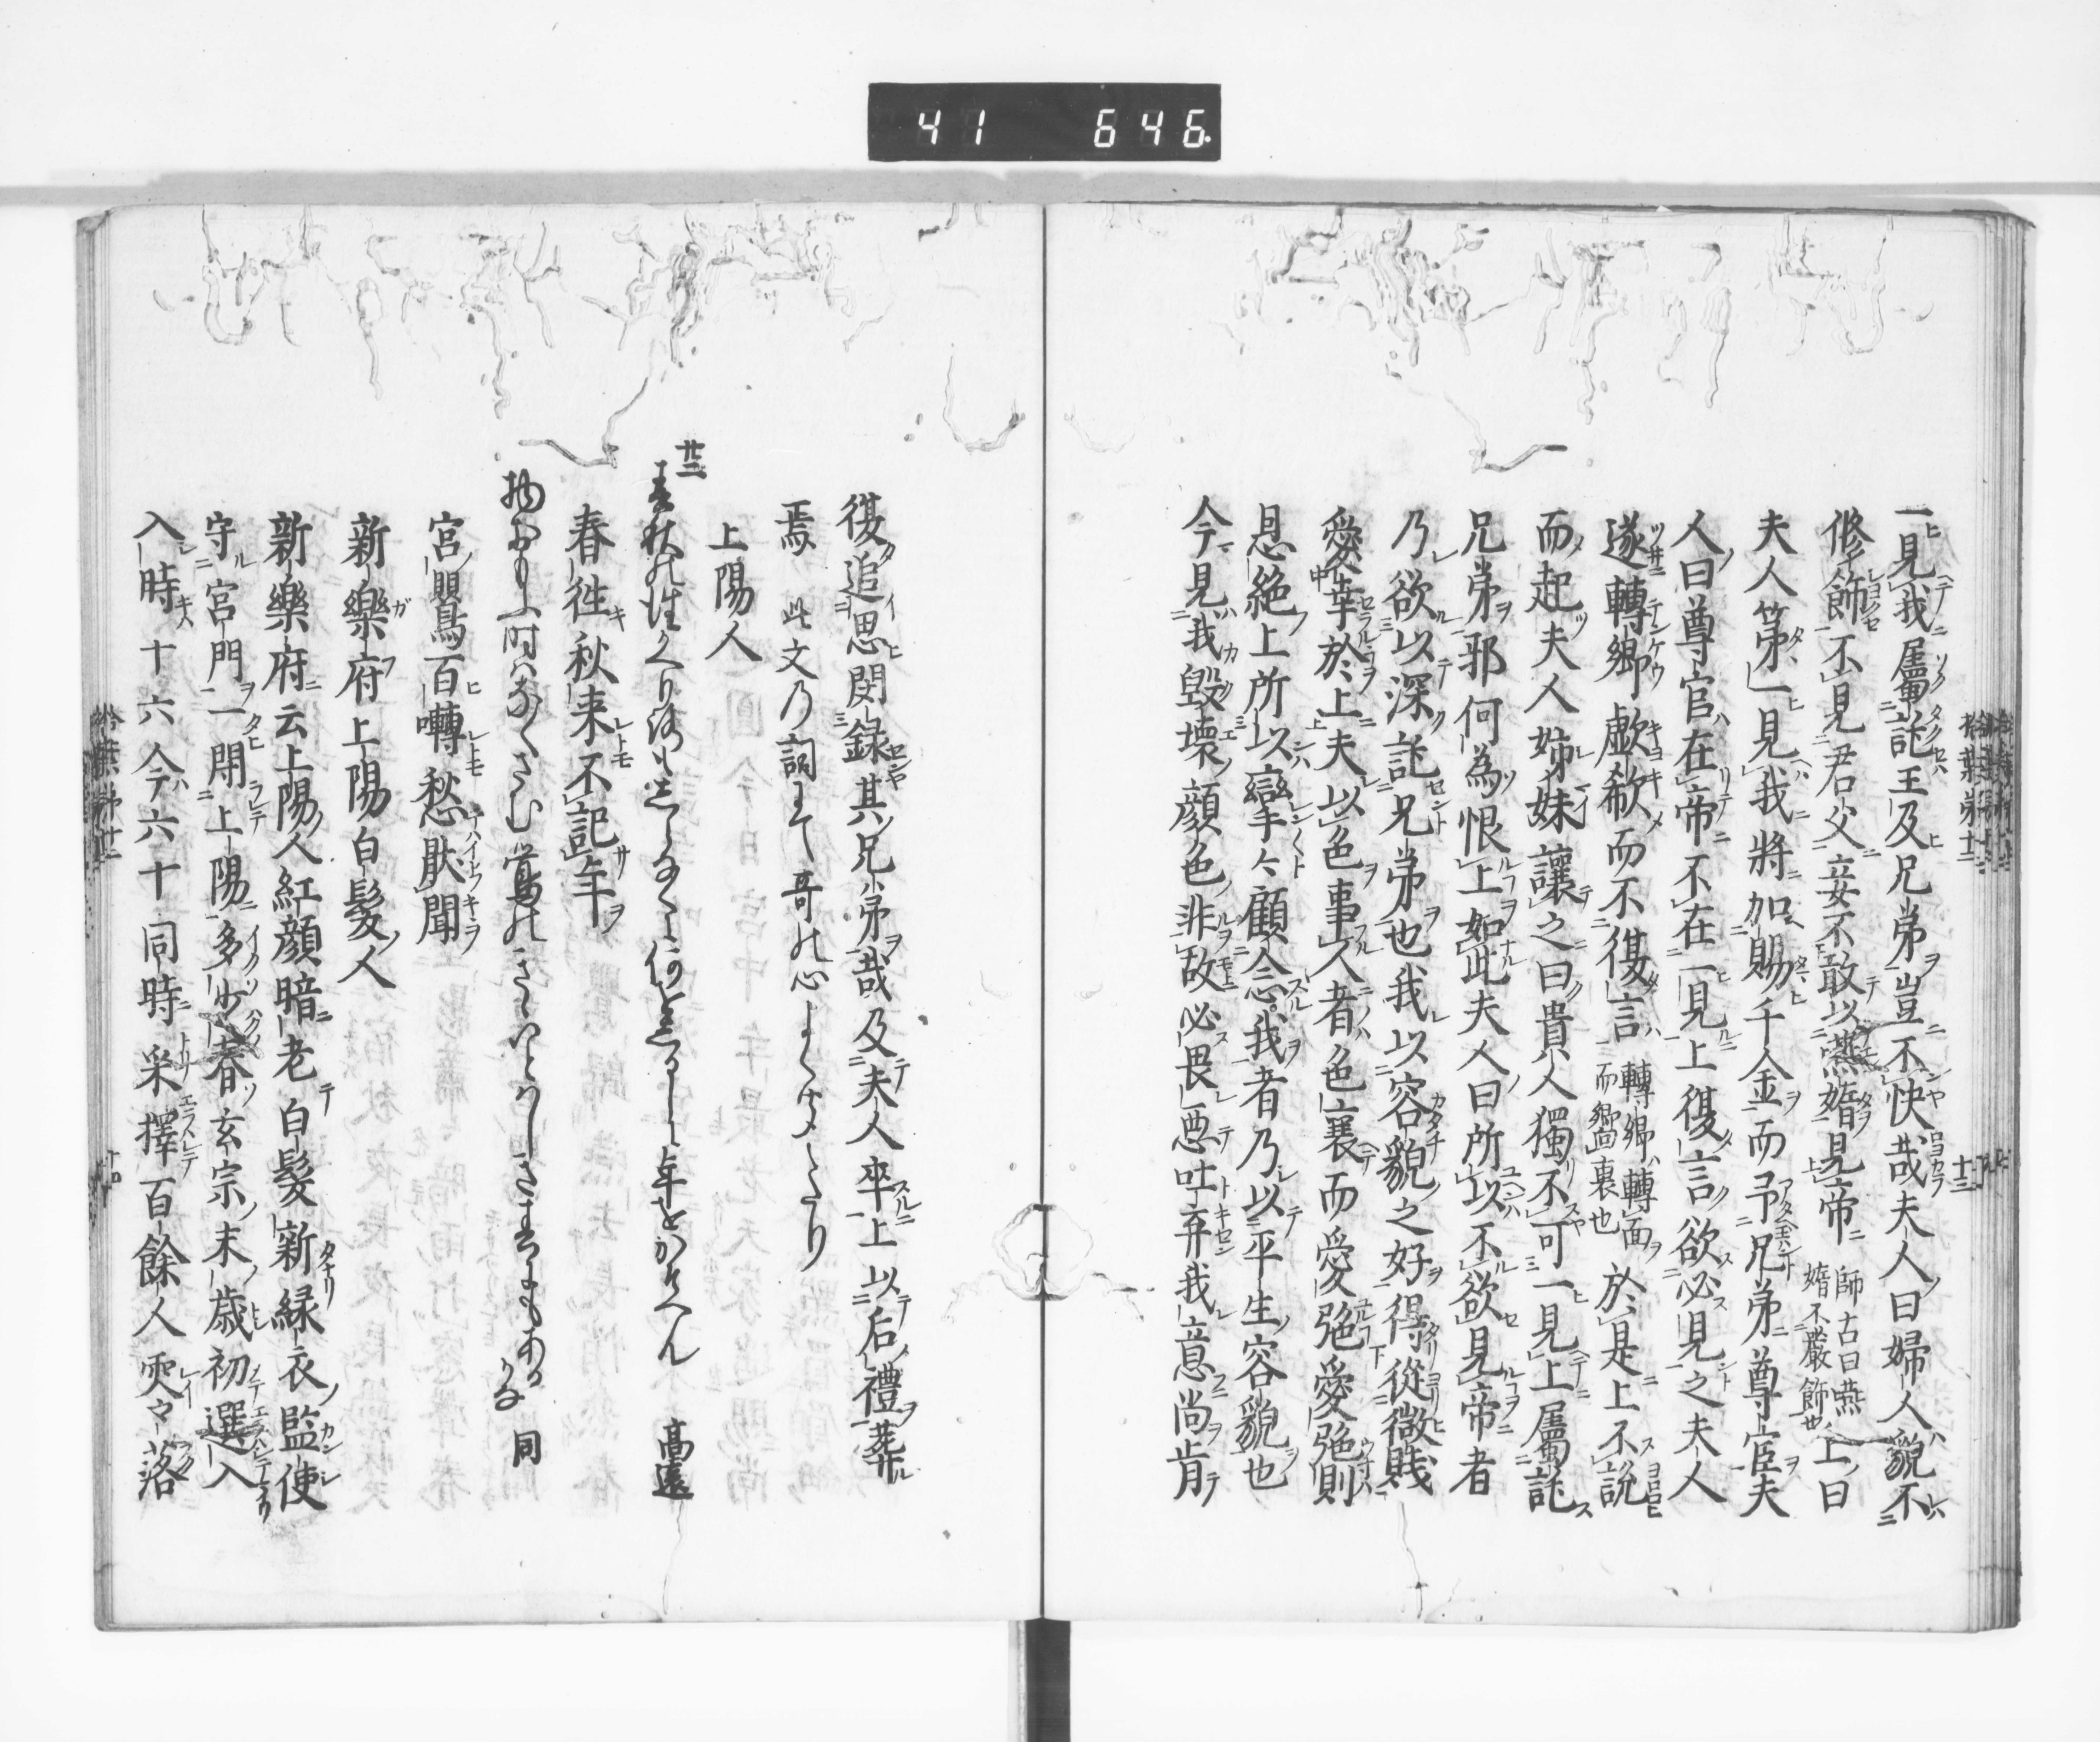 41 646
一見我屬託王及兄弟豈不快哉夫人曰婦人貌不
修飾不見君父妾不敢以燕婧見帝 師古曰燕婧不嚴飾也 上曰
夫人第一見我將加賜千金而予兄弟尊官夫
人曰尊官在帝不在一見上復言欲必見之夫人
遂轉鄉歔欷而不復言 轉鄉轉面而嚮裏也 於是上不説
而起夫人姉妹讓之曰貴人獨不可一見上屬託
兄弟邪何為恨上如此夫人曰所以不欲見帝者
乃欲以深託兄弟也我以容貌之好得從微賤
愛幸於上夫以色事人者色衰而愛弛愛弛則
恩絶上所以攣々顧念我者乃以平生容貌也
今見我毀壞顔色非故必畏惡吐弃我意尚肯
復追思閔錄其兄弟哉及夫人卒上以后禮葬
焉 此文乃詞にて哥の心よくきこえたり
上陽人
廿二
春秋の往かへり路もしらなくに何をしるしに年をかそへん 高遠
春往秋来不記年
物おもふ時はなくさむ鶯のきゝいとはしきまてもあるかな 同
宮鸎百囀愁猒聞
新樂府上陽白髮人
新樂府云上陽人紅顔暗老白髮新緑衣監使
守宮門一閇上陽多少春玄宗末歳初選入
入時十六今六十同時采擇百餘人零々落
拾葉第十二 十三
拾葉第十二 十四